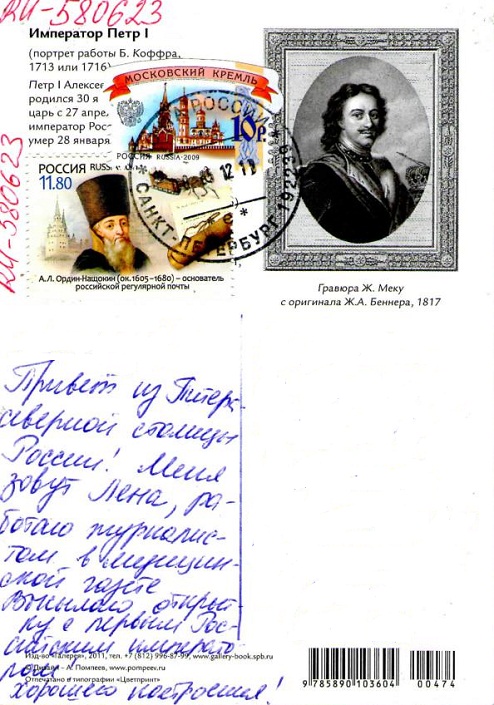 RU-580623
Император Петр I
(портрет работы Б. Коффра,
1713 или 1716)
Петр I Алексе
родился 30 я
царь с 27 апре
император Рос
умер 28 января
RU-580623
МОСКОВСКИЙ КРЕМЛЬ
10р.
РОССИЯ RUSSIA·2009
РОССИЯ RUSS
11.80
А.Л. Ордин-Нащокин (ок.1605–1680) – основатель
российской регулярной почты
РОССИЯ
12 11
САНКТ-ПЕТЕРБУРГ 192238
Гравюра Ж. Меку
с оригинала Ж.А. Беннера, 1817
Привет из Питера-
северной столицы
России! Меня
зовут Лена, ра-
ботаю журналис-
том в медицин-
ской газете
Высылаю открыт-
ку с первым Рос-
сийским императо
ром
Хорошего настроения!
Изд-во «Галерея», 2011, тел. +7 (812) 996-87-99, www.gallery-book.spb.ru
© Дизайн – А. Помпеев, www.pompeev.ru
Отпечатано в типографии «Цветпринт»
9 785890 103604
00474